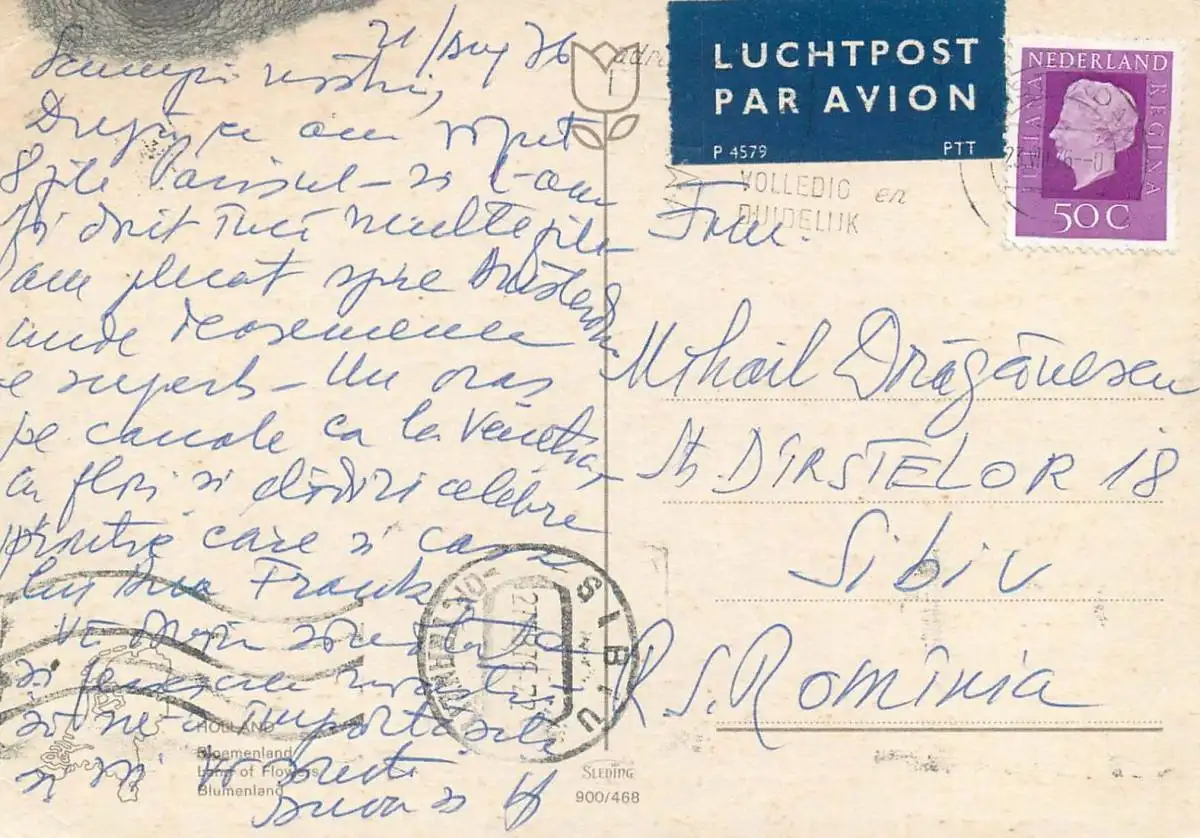 21/Aug 76
Scumpii noștri,
După ce am vizitat
8 zile Parisul - și l-am
fi dorit încă multe zile
am plecat spre Amsterdam
unde deasemenea
e superb - Un oraș
pe canale ca la Veneția,
cu flori și clădiri celebre
printre care și casa
lui Ana Frank
Vă dorim sănătate
și
și ne
și
LUCHTPOST
PAR AVION
P 4579 PTT
NEDERLAND
JULIANA REGINA
50C
VOLLEDIG en
DUIDELIJK
Fam.
Mihail Drăgănescu
Str. DÎRSTELOR 18
Sibiu
R.S. România
SIBIU
HOLLAND
Bloemenland
Land of Flowers
Blumenland
SLEDING
900/468